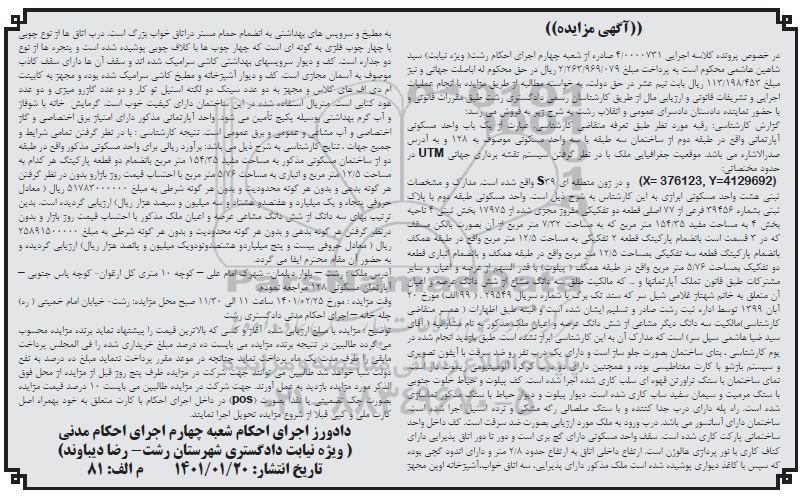 ((آگهی مزایده))
در خصوص پرونده کلاسه اجرایی ۴/۰۰۰۰۷۳۱ صادره از شعبه چهارم اجرای احکام رشت( ویژه نیابت) سید
شاهین هاشمی محکوم است به پرداخت مبلغ ۲/۲۶۳/۹۶۹/۰۷۹ ریال در حق محکوم له اباصلت جهانی و نیز
مبلغ ۱۱۳/۱۹۸/۴۵۳ ریال بابت نیم عشر در حق دولت. به خواست مطالبه از طریق مزایده با انجام عملیات
اجرایی و تشریفات قانونی و ارزیابی مال از طریق کارشناسان رسمی دادگستری رشت طبق مقررات قانونی و
با حضور نماینده دادستان دادسرای عمومی و انقلاب رشت به شرح زیر به فروش می رسد:
گزارش کارشناسی: رقبه مورد نظر طبق تعرفه متقاضی کارشناسی عبارت از یک باب واحد مسکونی
آپارتمانی واقع در طبقه دوم از ساختمان سه طبقه با سه واحد مسکونی موصوف به ۱۲۸ و به آدرس
صدرالاشاره می باشد. موقعیت جغرافیایی ملک با در نظر گرفتن سیستم نقشه برداری جهانی UTM در
حدود مختصاتی:
(X= 376123, Y=4129692) و در زون منطقه ای S۳۹ واقع شده است. مدارک و مشخصات
ثبتی هشت واحد مسکونی ابرازی به این کارشناس به شرح ذیل است. واحد مسکونی طبقه دوم با پلاک
ثبتی بشماره ۳۹۴۵۶ فرعی از ۷۷ اصلی قطعه دو تفکیکی مفروز مجزی شده از ۱۷۹۷۵ بخش ثبتی ۴ ناحیه
بخش ۴ به مساحت مفید ۱۵۴/۳۵ متر مربع که به مساحت ۷/۳۲ متر مربع از آن بصورت بالکن مسقف
که در ۳ قسمت است بانضمام پارکینگ قطعه ۲ تفکیکی به مساحت ۱۲/۵ متر مربع واقع در طبقه همکف
بانضمام پارکینگ قطعه سه تفکیکی بمساحت ۱۲/۵ متر مربع واقع در طبقه همکف و بانضمام انباری قطعه
دو تفکیک بمساحت ۵/۷۶ متر مربع واقع در طبقه همکف ( پیلوت) با قدر السهم از عرصه و اعیان و سایر
مشترکات طبق قانون تملک آپارتمانها و .. که مالکیت طلق سه دانگ مشاع از شش دانگ عرصه و اعیان
آن متعلق به خانم شهناز غلامی شیل سر که سند تک برگ با شماره سریال ۲۹۵۴۹ . ( ۹۹الف) مورخ ۲۰
آبان ۱۳۹۹ توسط اداره ثبت رشت صادر و تسلیم ایشان شده است و البته طبق اظهارات ( همسر متقاضی
کارشناسی)مالکیت سه دانگ دیگر مشاعی از شش دانگ عرصه و اعیان ملک مذکور به نام مشارالیه ( آقای
سید ضیا هاشمی سیل سر) است که مدارک آن به این کارشناسی ابراز نشده است. طبق بازدید انجام شده در
یوم کارشناسی ، بنای ساختمان بصورت جلو ساز است و دارای یک درب نفر رو ضد سرقت با آیفون تصویری
و سیستم بازشو با کارت مغناطیسی بوده و همچنین دارای دو درب کرکره آلومینیومی ریموت دار است.
نمای ساختمان با سنگ تراورتن قهوه ای سلب کاری شده اجرا شده است. کف پیلوت و حیاط خلوت جنوبی
با سنگ مرمیت و سیمان سفید ساب کاری شده است. دیوار پیلوت و دیوار حیاط با سنگ مذکور نماسازی
شده است. راه پله دارای درب جدا کننده و با سنگ صلصالی رگه مشکی و نرده استیل اجرا شده است.
ساختمان دارای آسانسور می باشد. درب ورود به ملک مورد ارزیابی بصورت ضد سرقت است. کف داخل واحد
ساختمانی پارکت کاری شده است. سقف واحد مسکونی دارای گچ بری است و دور تا دور اتاق پذیرایی دارای
کناف کاری با نور پردازی هالوژن است. ارتفاع داخلی اتاق به ارتفاع حدود ۲/۸ متر و دارای اندود گچی بوده
که سپس با کاغذ دیواری پوشیده شده است ملک مذکور دارای پذیرایی، سه اتاق خواب،آشپزخانه اوپن مجهز
به مطبخ و سرویس های بهداشتی به انضمام حمام مستر دراتاق خواب بزرگ است. درب اتاق ها از نوع چوبی
با چهار چوب فلزی به گونه ای است که چهار چوب ها با کلاف چوبی پوشیده شده است و پنجره ها از نوع
دو جداره است. کف و دیوار سرویسهای بهداشتی کاشی سرامیک شده اند و سقف آن ها دارای سقف کاذب
موصوف به آسمان مجازی است. کف و دیوار آشپزخانه و مطبخ کاشی سرامیک شده بوده و مجهز به کابینت
ام دی اف های گلاس و مجهز به دو عدد سینک دو لگنه استیل تو کار و دو عدد گازرو میزی و دو عدد
هود کتابی است. متریال استفاده شده در این ساختمان دارای کیفیت خوب است. گرمایش خانه با شوفاژ
و آب گرم بهداشتی بوسیله پکیج تأمین می شود. واحد آپارتمانی مذکور دارای امتیاز برق اختصاصی و گاز
اختصاصی و آب مشاعی و عمومی و برق عمومی است. نتیجه کارشناسی : با در نظر گرفتن تمامی شرایط و
جمیع جهات ، نتایج کارشناسی به شرح ذیل می باشد: برآورد ریالی برای واحد مسکونی مذکور واقع در طبقه
دو از ساختمان مسکونی مذکور به مساحت مفید ۱۵۴/۳۵ متر مربع بانضمام دو قطعه پارکینگ هر کدام به
مساحت ۱۲/۵ متر مربع و انباری به مساحت ۵/۷۶ متر مربع با احتساب قیمت روز بازارو بدون در نظر گرفتن
هر گونه بدهی و بدون هر گونه محدودیت و بدون هر گونه شرطی به مبلغ ۵۱۷۸۳۰۰۰۰۰۰ ریال ( معادل
حروفی پنجاه و یک میلیارد و هفتصدو هشتاد و سه میلیون و سیصد هزار ریال) ارزیابی گردیده است. بدین
ترتیب بهای سه دانگ از شش دانگ مشاعی عرصه و اعیان ملک مذکور با احتساب قیمت روز بازار و بدون
درنظر گرفتن هر گونه بدهی و بدون هر گونه محدودیت و بدون هر گونه شرطی به مبلغ ۲۵۸۹۱۵۰۰۰۰۰
ریال ( معادل حروفی بیست و پنج میلیاردو هشتصدونودویک میلیون و پانصد هزار ریال) ارزیابی گردیده و
به حضور آن مقام محترم ایفا می گردد.
آدرس ملک : رشت – بلوار دیلمان- شهرک امام علی – کوچه ۱۰ متری کل ارغوان- کوچه یاس جنوبی –
آپارتمان مسکونی ۱۲۸ مراجعه نموده.
وقت مزایده : مورخ ۱۴۰۱/۰۲/۲۵ ساعت ۱۱ الی ۱۱/۳۰ صبح محل مزایده: رشت- خیابان امام خمینی ( ره)
جله خانه – اجرای احکام مدنی دادگستری رشت
توضیح : مزایده با مبلغ ارزیابی شده آغاز و کسی که بالاترین قیمت را پیشنهاد نماید برنده مزایده محسوب
می گردد طالبین در نتیجه برنده مزایده می بایست ده درصد مبلغ خریداری شده را فی المجلس پرداخت
مابقی را ظرف مدت یک ماه پرداخت نماید چنانچه در موعد مقرر پرداخت ننماید مبلغ ده درصد به نفع
دولت ضبط خواهد شد طالبین می توانند جهت شرکت در مزایده ظرف پنج روز قبل از مزایده از محل فوق
الذکر مورد مزایده بازدید به عمل آورند. جهت شرکت در مزایده طالبین می بایست ۱۰ درصد قیمت مزایده
بصورت چک تضمینی یا نقدا بصورت (pos) در داخل اجرای احکام با کارت متعلق به خود بهمراه اصل
کارت ملی و کپی قبلا از شروع مزایده تحویل اجرا نمایند.
دادورز اجرای احکام شعبه چهارم اجرای احکام مدنی
( ویژه نیابت دادگستری شهرستان رشت– رضا دیباوند)
تاریخ انتشار: ۱۴۰۱/۰۱/۲۰ م الف: ۸۱